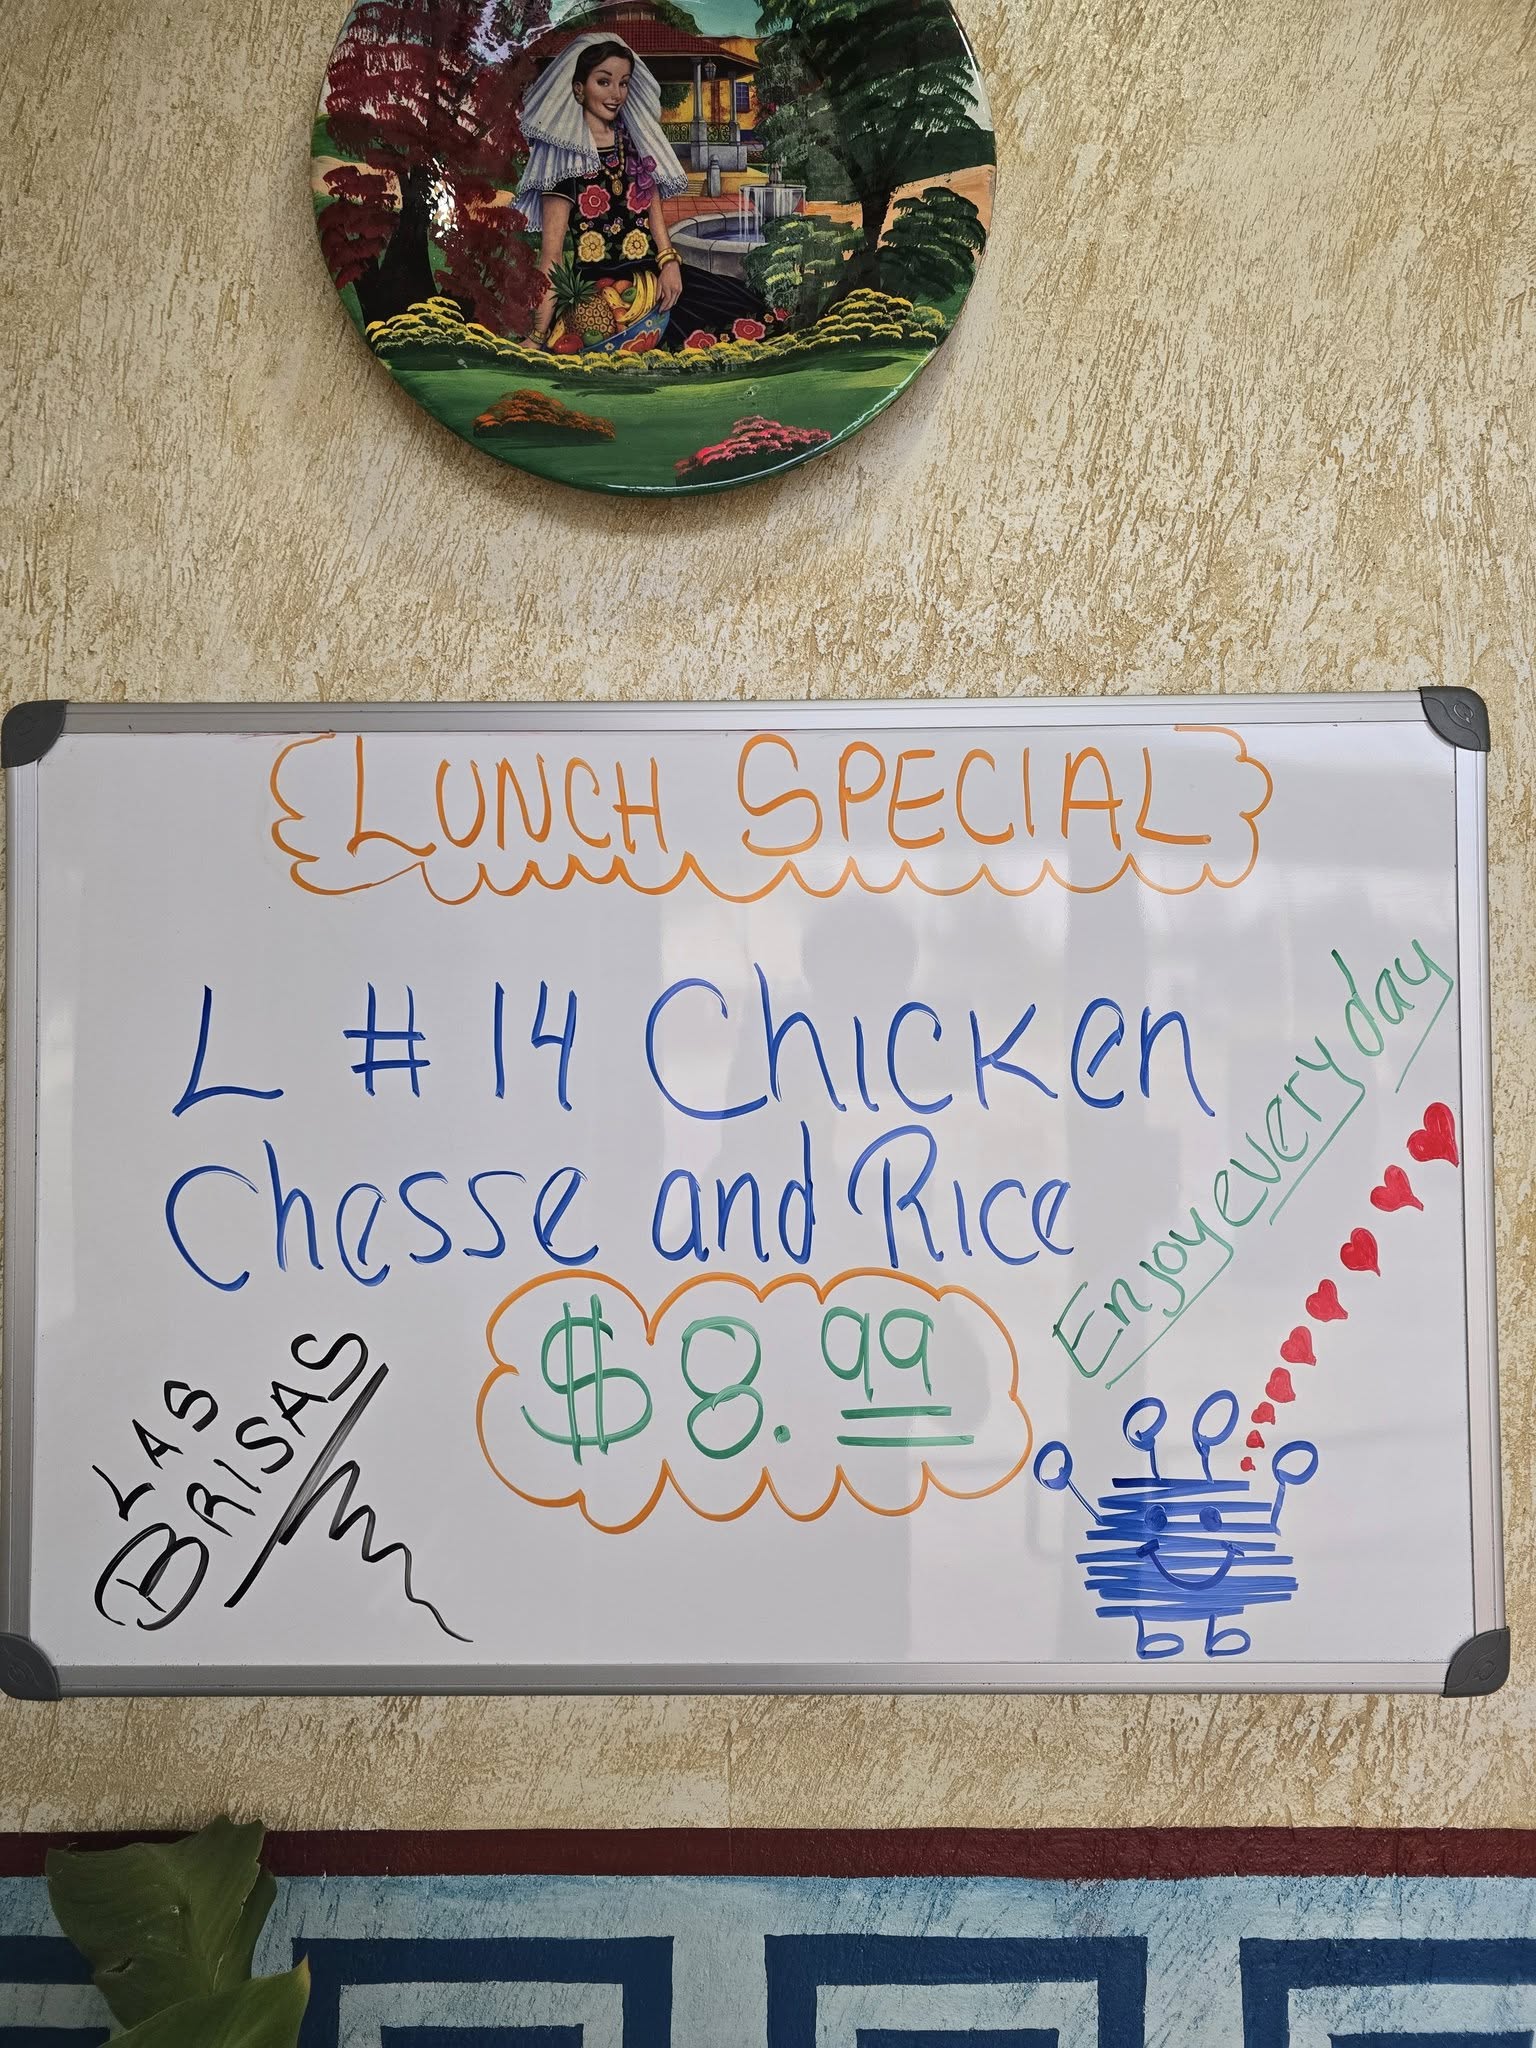 LUNCH SPECIAL
L # 14 Chicken
Chesse and Rice
$8.99
Enjoy every day
LAS
BRISAS